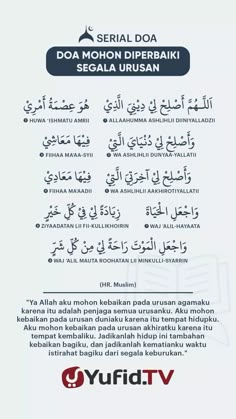 SERIAL DOA
DOA MOHON DIPERBAIKI
SEGALA URUSAN
اَللَّهُمَّ أَصْلِحْ لِيْ دِيْنِيَ الَّذِيْ
هُوَ عِصْمَةُ أَمْرِيْ
ALLAAHUMMA ASHLIHLII DIINIYALLADZII
HUWA 'ISHMATU AMRII
وَأَصْلِحْ لِيْ دُنْيَايَ الَّتِيْ
فِيْهَا مَعَاشِيْ
WA ASHLIHLII DUNYAA-YALLATII
FIIHAA MA'AA-SYII
وَأَصْلِحْ لِيْ آخِرَتِيْ الَّتِيْ
فِيْهَا مَعَادِيْ
WA ASHLIHLII AAKHIROTIYALLATII
FIIHAA MA'AADII
وَاجْعَلِ الْحَيَاةَ
زِيَادَةً لِيْ فِيْ كُلِّ خَيْرٍ
WAJ 'ALIL-HAYAATA
ZIYAADATAN LII FII-KULLIKHOIRIN
وَاجْعَلِ الْمَوْتَ رَاحَةً لِيْ مِنْ كُلِّ شَرٍّ
WAJ 'ALIL MAUTA ROOHATAN LII MINKULLI-SYARRIN
(HR. Muslim)
"Ya Allah aku mohon kebaikan pada urusan agamaku
karena itu adalah penjaga semua urusanku. Aku mohon
kebaikan pada urusan duniaku karena itu tempat hidupku.
Aku mohon kebaikan pada urusan akhiratku karena itu
tempat kembaliku. Jadikanlah hidup ini tambahan
kebaikan bagiku, dan jadikanlah kematianku waktu
istirahat bagiku dari segala keburukan."
Yufid.TV